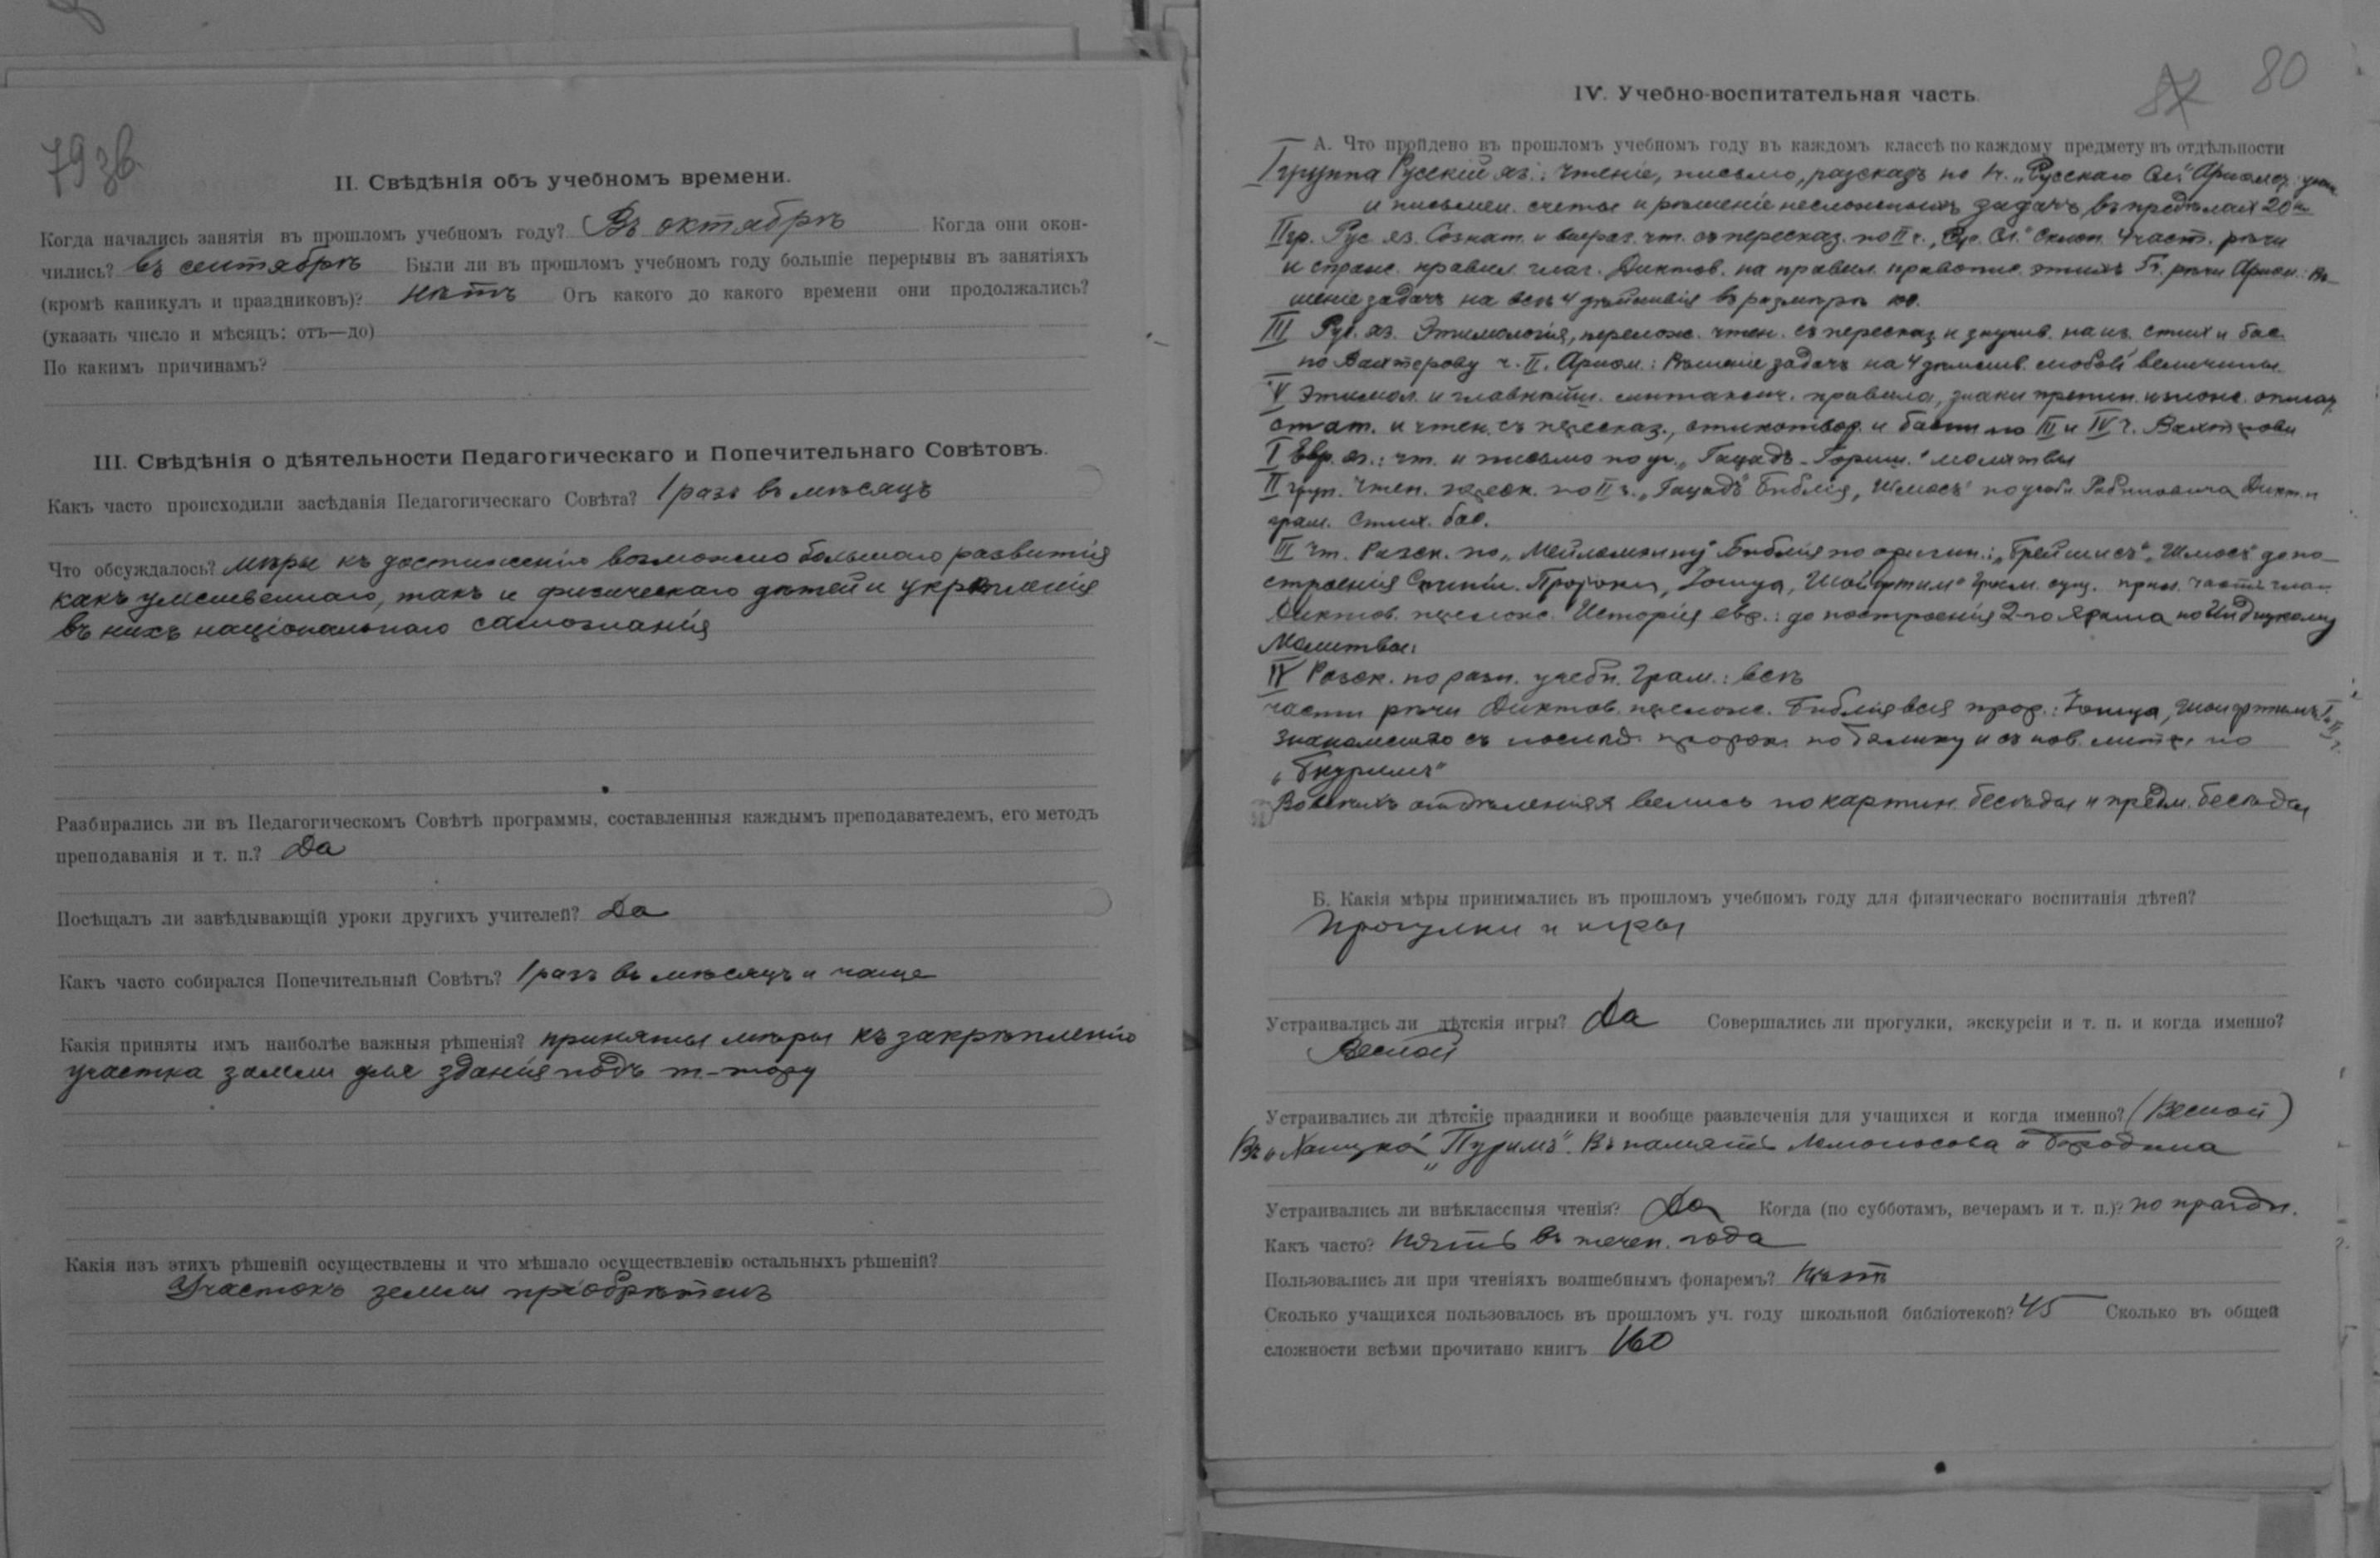 79 зв.
II. Свѣдѣнія объ учебномъ времени.
Когда начались занятія въ прошломъ учебномъ году? Въ октябрѣ Когда они окон-
чились? въ сентябрѣ Были ли въ прошломъ учебномъ году большіе перерывы въ занятіяхъ
(кромѣ каникулъ и праздниковъ)? нѣтъ Отъ какого до какого времени они продолжались?
(указать число и мѣсяцъ: отъ—до)
По какимъ причинамъ?
III. Свѣдѣнія о дѣятельности Педагогическаго и Попечительнаго Совѣтовъ.
Какъ часто происходили засѣданія Педагогическаго Совѣта? 1 разъ въ мѣсяцъ
Что обсуждалось? мѣры къ достиженію возможно большаго развитія
какъ умственнаго, такъ и физическаго дѣтей и укрѣпленія
въ нихъ національнаго самознанія
Разбирались ли въ Педагогическомъ Совѣтѣ программы, составленныя каждымъ преподавателемъ, его методъ
преподаванія и т. п.? Да
Посѣщалъ ли завѣдывающій уроки другихъ учителей? Да
Какъ часто собирался Попечительный Совѣтъ? 1 разъ въ мѣсяцъ и чаще
Какія приняты имъ наиболѣе важныя рѣшенія? приняты мѣры къ закрѣпленію
участка земли для зданія подъ т.-тору
Какія изъ этихъ рѣшеній осуществлены и что мѣшало осуществленію остальныхъ рѣшеній?
Участокъ земли пріобрѣтенъ
80
IV. Учебно-воспитательная часть.
А. Что пройдено въ прошломъ учебномъ году въ каждомъ классѣ по каждому предмету въ отдѣльности
I группа Русскій яз.: чтеніе, письмо, разсказъ по к. „Русскаго Сл." Арифмет.
и письмен. счеты и рѣшеніе несложныхъ задачъ въ предѣлахъ 20
II гр. Рус яз. Сознат. и выраз. чт. съ пересказ. по II ч. „Рус. Сл." Склон. 4 част. рѣчи
и спряж. правил. глаг. Диктов. на правил. правопис. этихъ рѣчи Арифм.: рѣ-
шеніе задачъ на всѣ 4 дѣйствія въ размѣрѣ 100.
III Рус. яз. Этимологія, перелож. чтен. съ пересказ и заучив. на из. стих и бас
по Вахтерову ч. II. Арифм.: Рѣшеніе задачъ на 4 дѣйств. любой величины.
IV Этимол. и главнѣйш. синтаксич. правила, знаки препин. излож. описат.
стат. и чтен. съ пересказ., стихотвор. и басни по III и IV ч. Вахтерова
I Евр. яз.: чт. и письмо по уч. молитвы
II груп. Чтен. переск. по II ч. Библія, „Шмосъ" по учебн. Рабиновича Дикт. и
грам. Стих. бас.
III Чт. Разск. по Библія по оригин.: „Брейшисъ", „Шмосъ" до по-
строенія Скиніи. Пророки, Іошуа, Шойфтим" Грам. сущ. прил. части глаг.
Диктов. перелож. Исторія евр.: до построенія 2-го храма по
Молитвы:
IV Разск. по разн. учебн. Грам.: всѣ
части рѣчи Диктов. перелож. Библія вся прор.: Іошуа, Шойфтимъ
знакомство съ послѣд. пророк. по Бялику и съ нов. литер. по
„Бикуримъ"
Во всѣхъ отдѣленіяхъ велись по картин. бесѣды и предм. бесѣды
Б. Какія мѣры принимались въ прошломъ учебномъ году для физическаго воспитанія дѣтей?
Прогулки и игры
Устраивались ли дѣтскія игры? Да Совершались ли прогулки, экскурсіи и т. п. и когда именно?
Весной
Устраивались ли дѣтскіе праздники и вообще развлеченія для учащихся и когда именно? (Весной)
Въ „Хануко" „Пуримъ". Въ память Ломоносова и Бородина
Устраивались ли внѣклассныя чтенія? Да Когда (по субботамъ, вечерамъ и т. п.)? по праздн.
Какъ часто? пять въ течен. года
Пользовались ли при чтеніяхъ волшебнымъ фонаремъ? Нѣтъ
Сколько учащихся пользовалось въ прошломъ уч. году школьной библіотекой? 45 Сколько въ общей
сложности всѣми прочитано книгъ 160